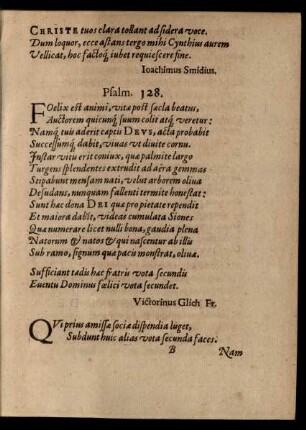 CHRISTE tuos clara tollant ad sidera voce.
Dum loquor, ecce astans tergo mihi Cynthius aurem
Vellicat, hoc factoq́; iubet requiescere fine.
Ioachimus Smidius.
Psalm. 128.
FOelix est animi, vitæ post sæcla beatus,
Auctorem quicunq́; suum colit atq́; veretur:
Namq́; tuis aderit captis DEVS, acta probabit
Successumq́; dabit, viuas vt diuite cornu.
Instar vitis erit coniux, quæ palmite largo
Turgens splendentes extrudit ad aëra gemmas
Stipabunt mensam nati, velut arborem oliua
Desudans, nunquam fallenti termite honestat:
Sunt hæc dona DEI quæ pro pietate rependit
Et maiora dabit, videas cumulata Siones
Quæ numerare licet nulli bona, gaudia plena
Natorum & natos & qui nascentur ab illis
Sub ramo, signum quæ pacis monstrat, oliuæ.
Sufficiant tædis hæc fratris vota secundis
Euentu Dominus fœlici vota secundet.
Victorinus Glich Fr.
QVi prius amissæ sociæ dispendia luget,
Subdunt huic alias vota secunda faces.
B
Nam